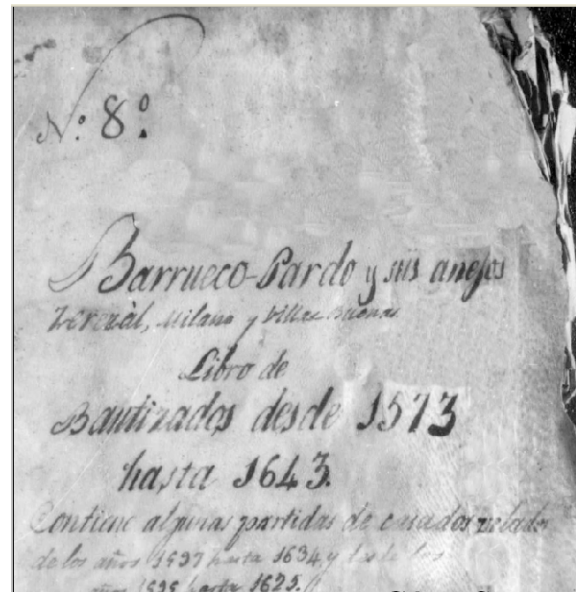 N.º 8º
Barrueco-Pardo y sus anejos
Zerezal, Milano y Villas Buenas
Libro de
Bautizados desde 1573
hasta 1643.
Contiene algunas partidas de casados velados
de los años 1597 hasta 1634 y desde los
años hasta 1625.